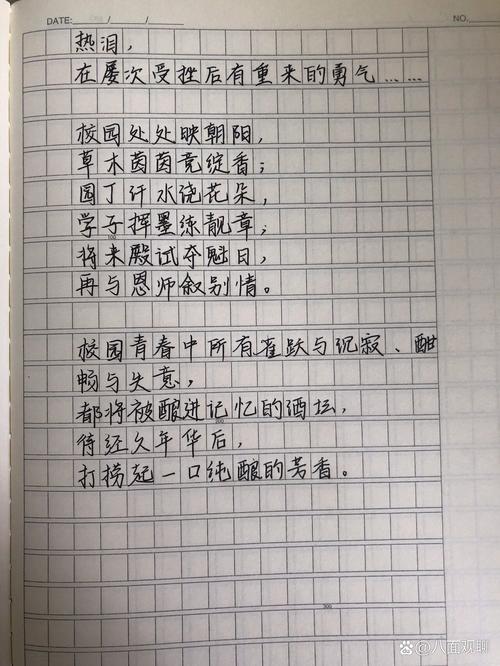 DATE: / /
NO.
热泪，
在屡次受挫后有重来的勇气……
校园处处映朝阳，
草木茵茵竞绽香；
园丁汗水浇花朵，
学子挥墨练靓章；
100
将来殿试夺魁日，
再与恩师叙别情。
校园青春中所有雀跃与沉寂、酣
畅与失意，
都将被酿进记忆的酒坛，
200
待经久年华后，
打捞起一口纯酿的芳香。
300
八面观聊